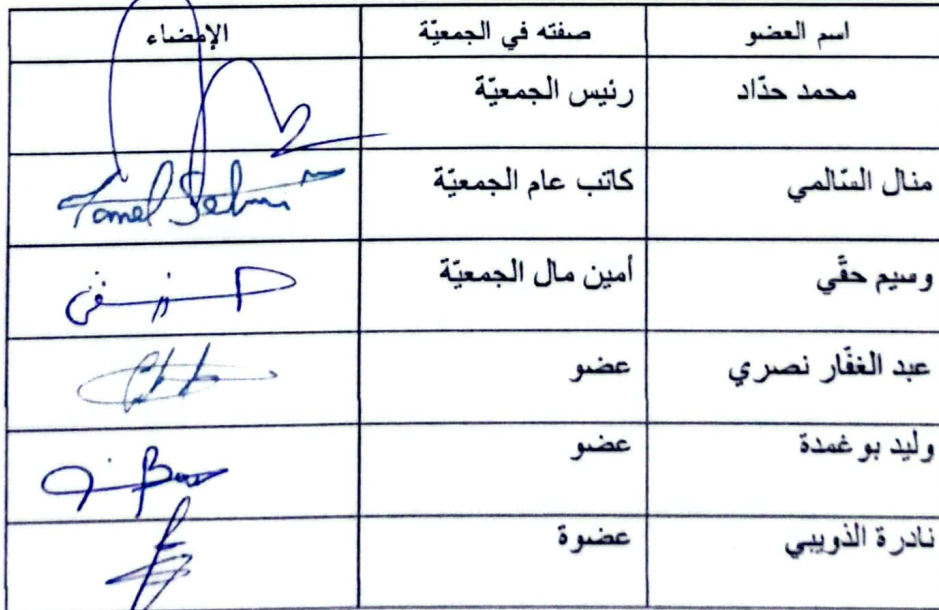 اسم العضو صفته في الجمعيّة الإمضاء
محمد حدّاد رئيس الجمعيّة
منال السّالمي كاتب عام الجمعيّة
وسيم حقّي أمين مال الجمعيّة
عبد الغفّار نصري عضو
وليد بوغمدة عضو
نادرة الذويبي عضوة